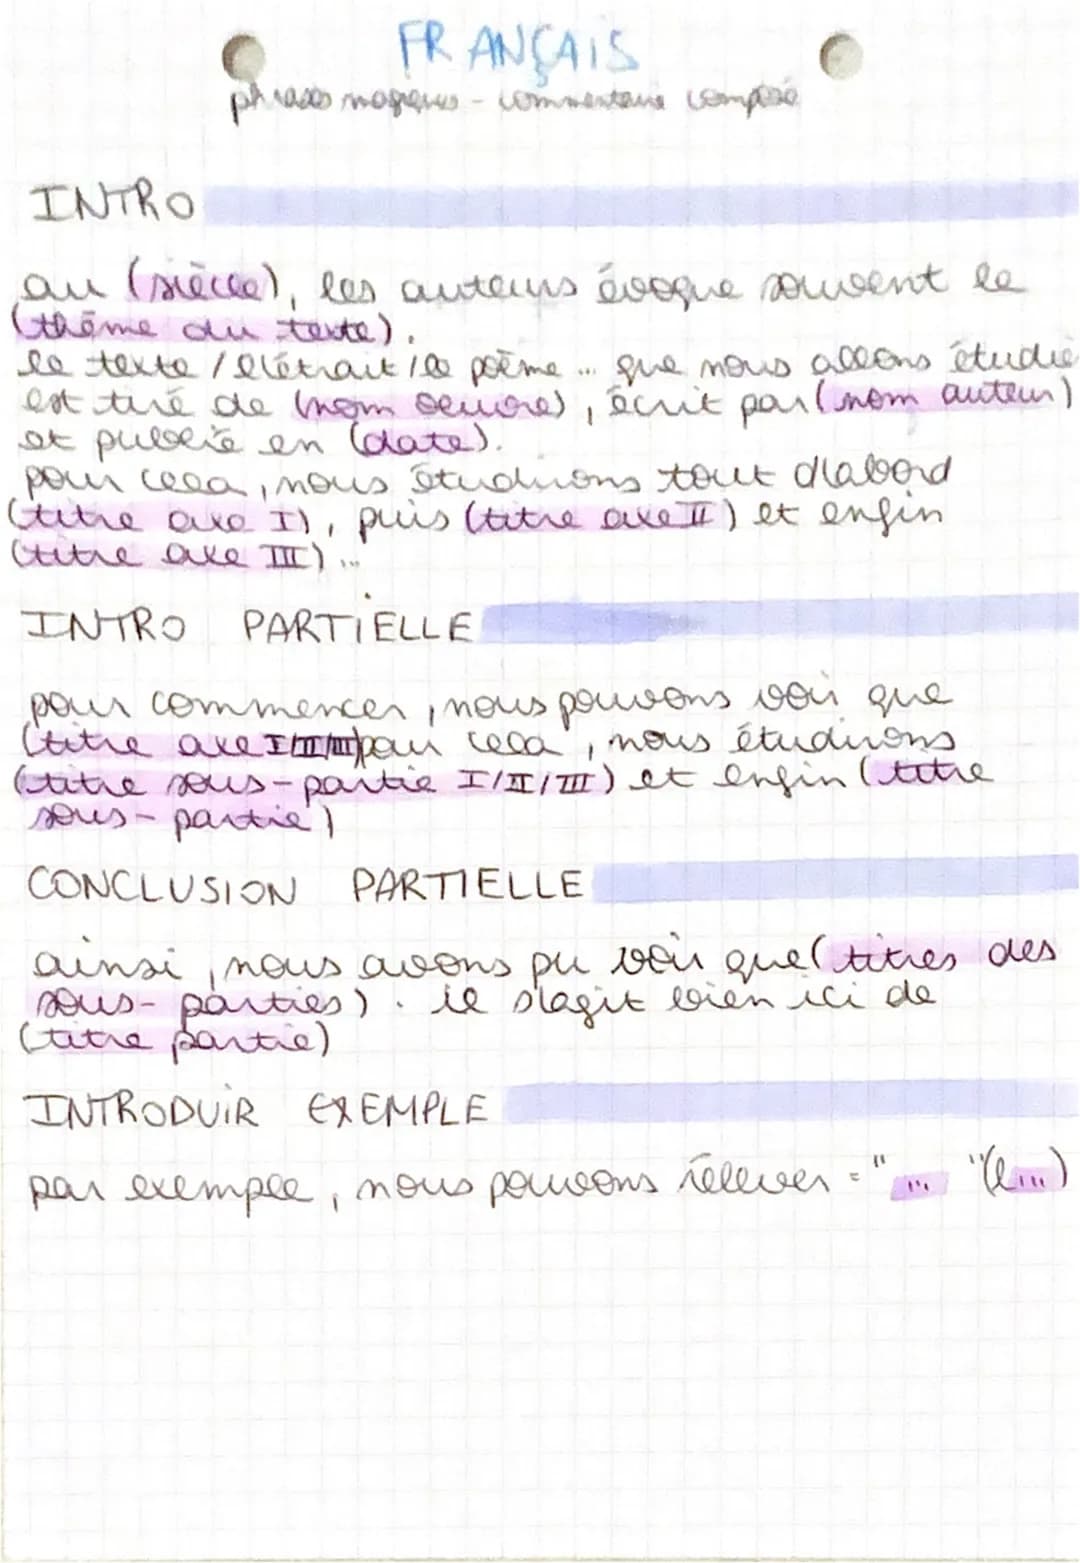 FRANÇAIS
phrases magiques - commentaire composé
INTRO
au (siècle), les auteurs évoque souvent le
(thème du texte).
le texte / l'extrait / le poème ... que nous allons étudié
est tiré de (nom oeuvre), écrit par (nom auteur)
et publié en (date).
pour cela, nous étudirons tout d'abord
(titre axe I), puis (titre axe II) et enfin
(titre axe III)...
INTRO PARTIELLE
pour commencer, nous pouvons voir que
(titre axe I/II/III) pour cela, nous étudirons
(titre sous-partie I/II/III) et enfin (titre
sous-partie)
CONCLUSION PARTIELLE
ainsi, nous avons pu voir que (titres des
sous-parties). il s'agit bien ici de
(titre partie)
INTRODUIR EXEMPLE
par exemple, nous pouvons rellever = "... "(l...)